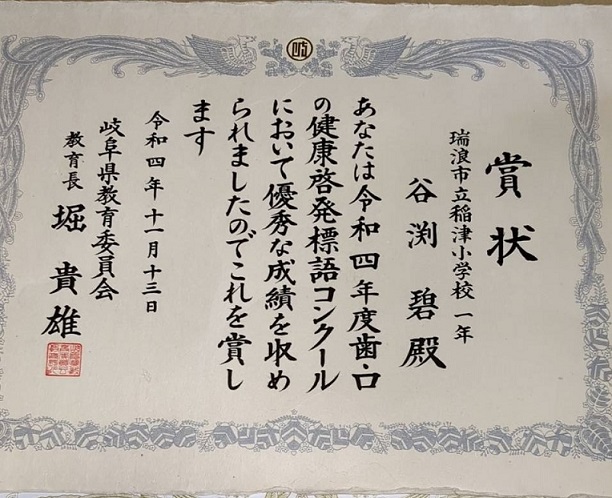 岐
賞状
瑞浪市立稲津小学校 一年
谷渕 碧 殿
あなたは令和四年度歯・口
の健康啓発標語コンクール
において優秀な成績を収め
られましたのでこれを賞し
ます
令和四年十一月十三日
岐阜県教育委員会
教育長 堀 貴雄